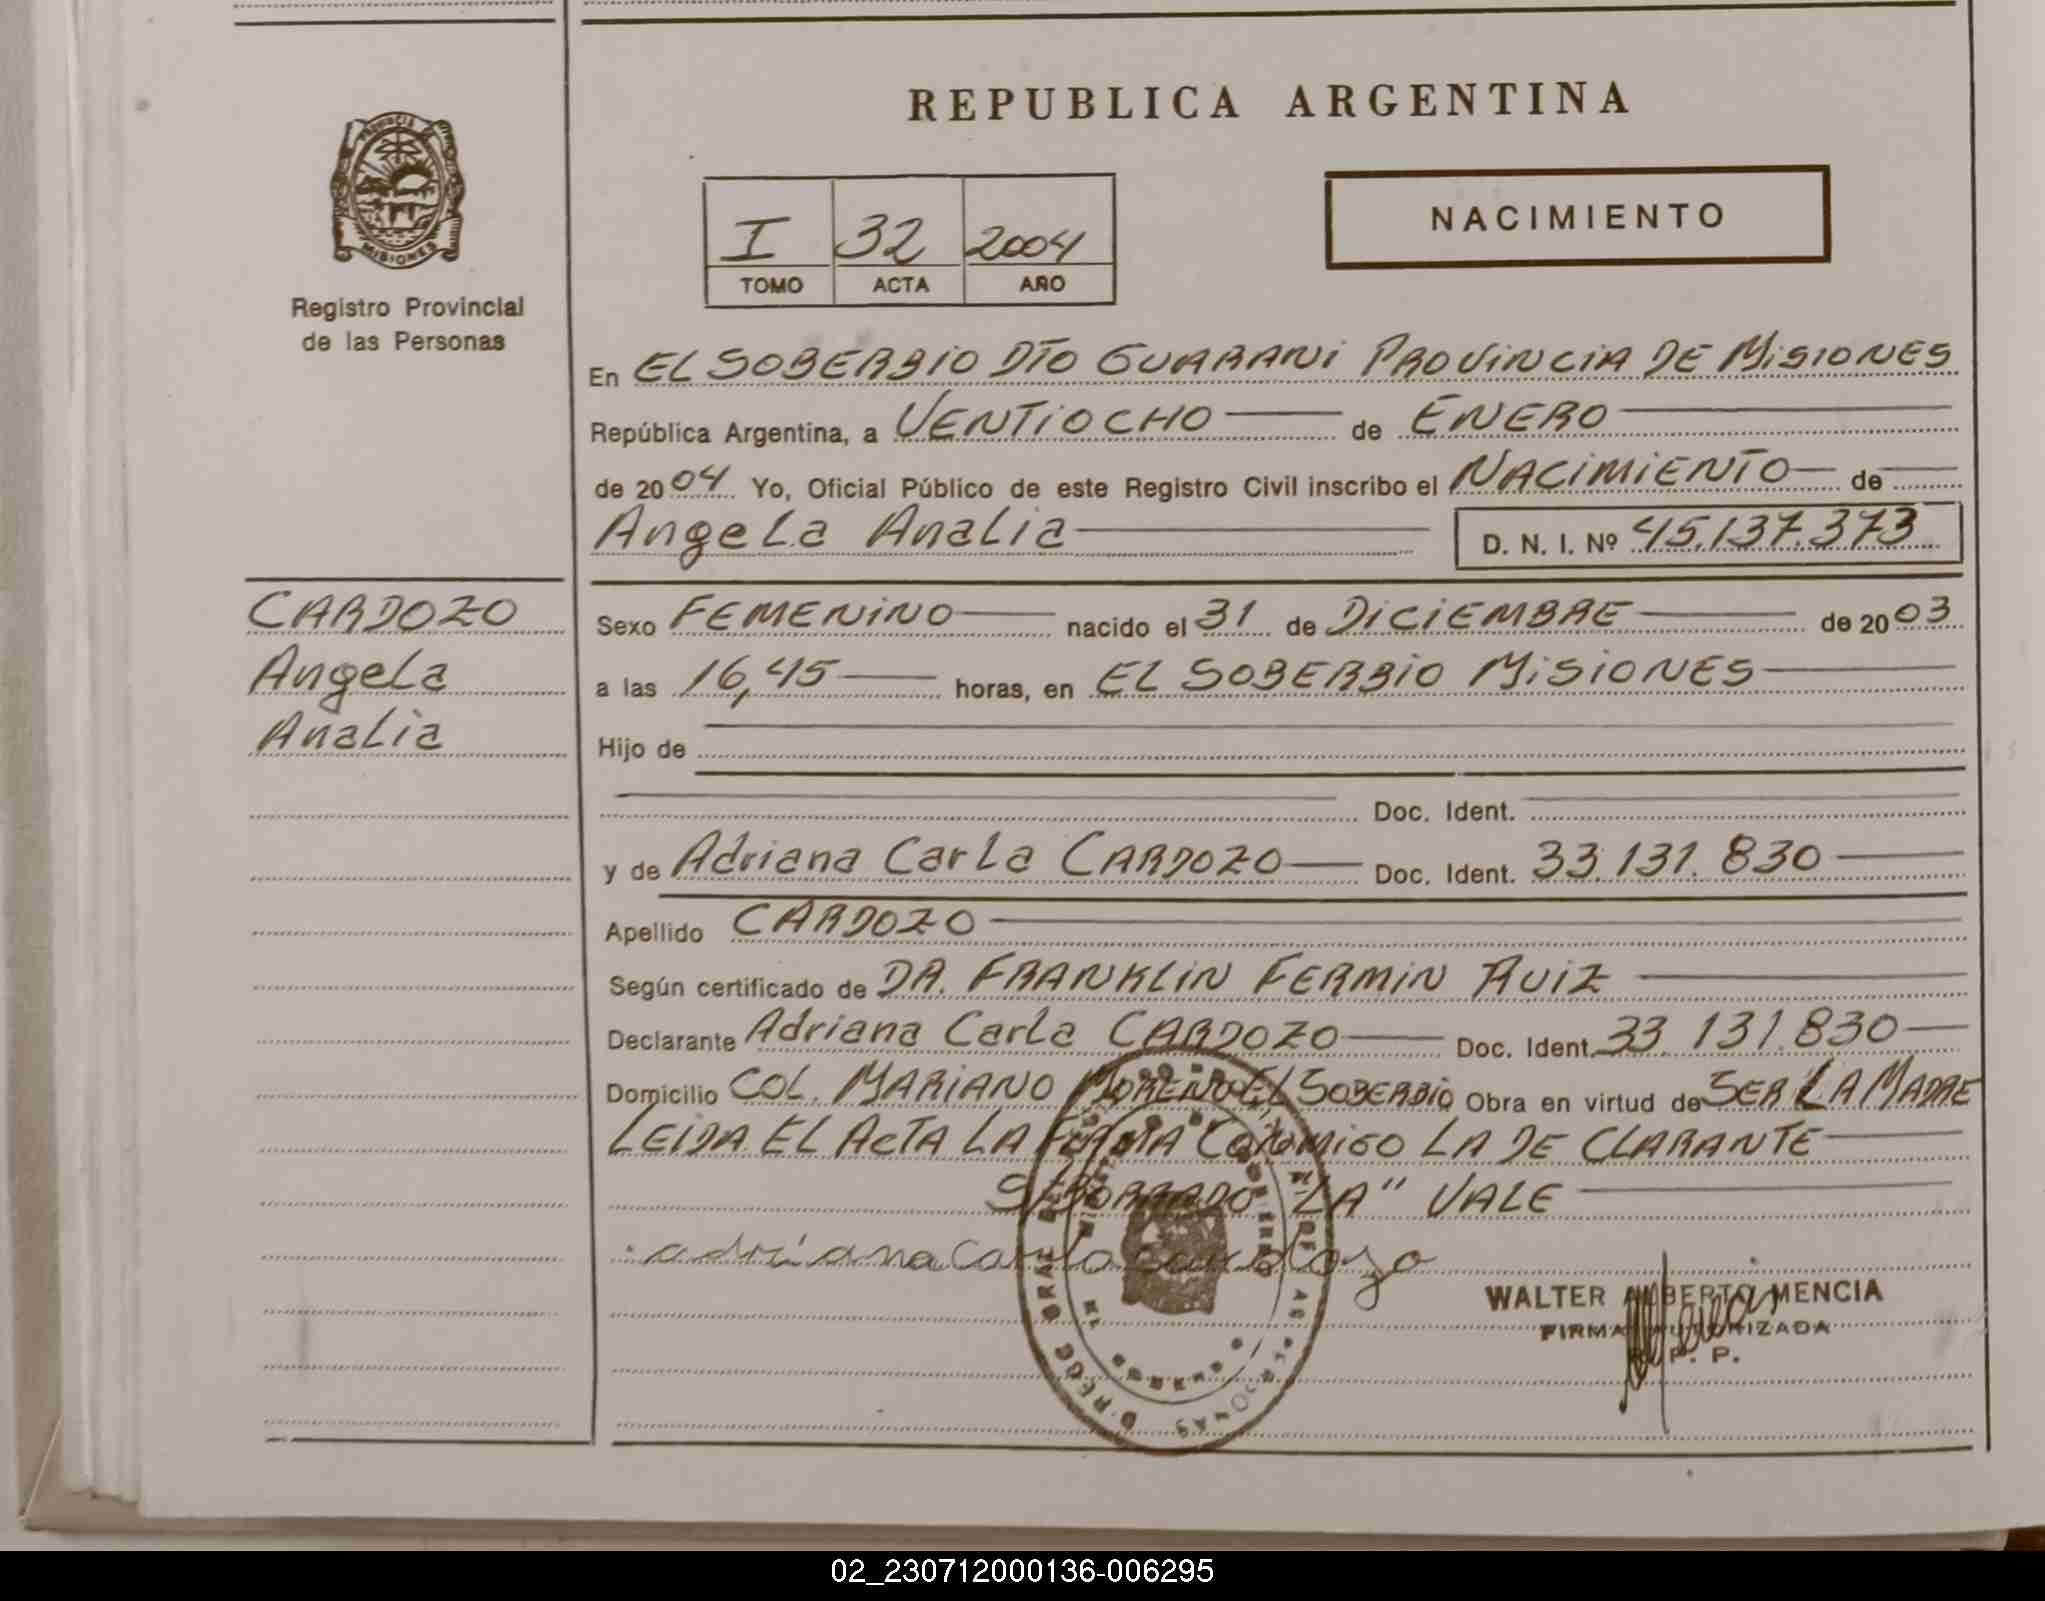 REPUBLICA ARGENTINA
PROVINCIA DE
MISIONES
Registro Provincial
de las Personas
I 32 2004
TOMO ACTA AÑO
NACIMIENTO
En EL SOBERBIO DTO GUARANI PROVINCIA DE MISIONES
República Argentina, a VENTIOCHO de ENERO
de 2004 Yo, Oficial Público de este Registro Civil inscribo el NACIMIENTO de
Angela Analia D. N. I. Nº 45.137.373
CARDOZO
Angela
Analia
Sexo FEMENINO nacido el 31 de DICIEMBRE de 2003
a las 16,45 horas, en EL SOBERBIO MISIONES
Hijo de
Doc. Ident.
y de Adriana Carla CARDOZO Doc. Ident. 33.131.830
Apellido CARDOZO
Según certificado de DR. FRANKLIN FERMIN RUIZ
Declarante Adriana Carla CARDOZO Doc. Ident. 33.131.830
Domicilio COL. MARIANO MORENO EL SOBERBIO Obra en virtud de SER LA MADRE
LEIDA EL ACTA LA FIRMA CONMIGO LA DECLARANTE
S/BORRADO "LA" VALE
adriana Carla cardozo
WALTER ALBERTO MENCIA
FIRMA AUTORIZADA
R. P. P.
02_230712000136-006295